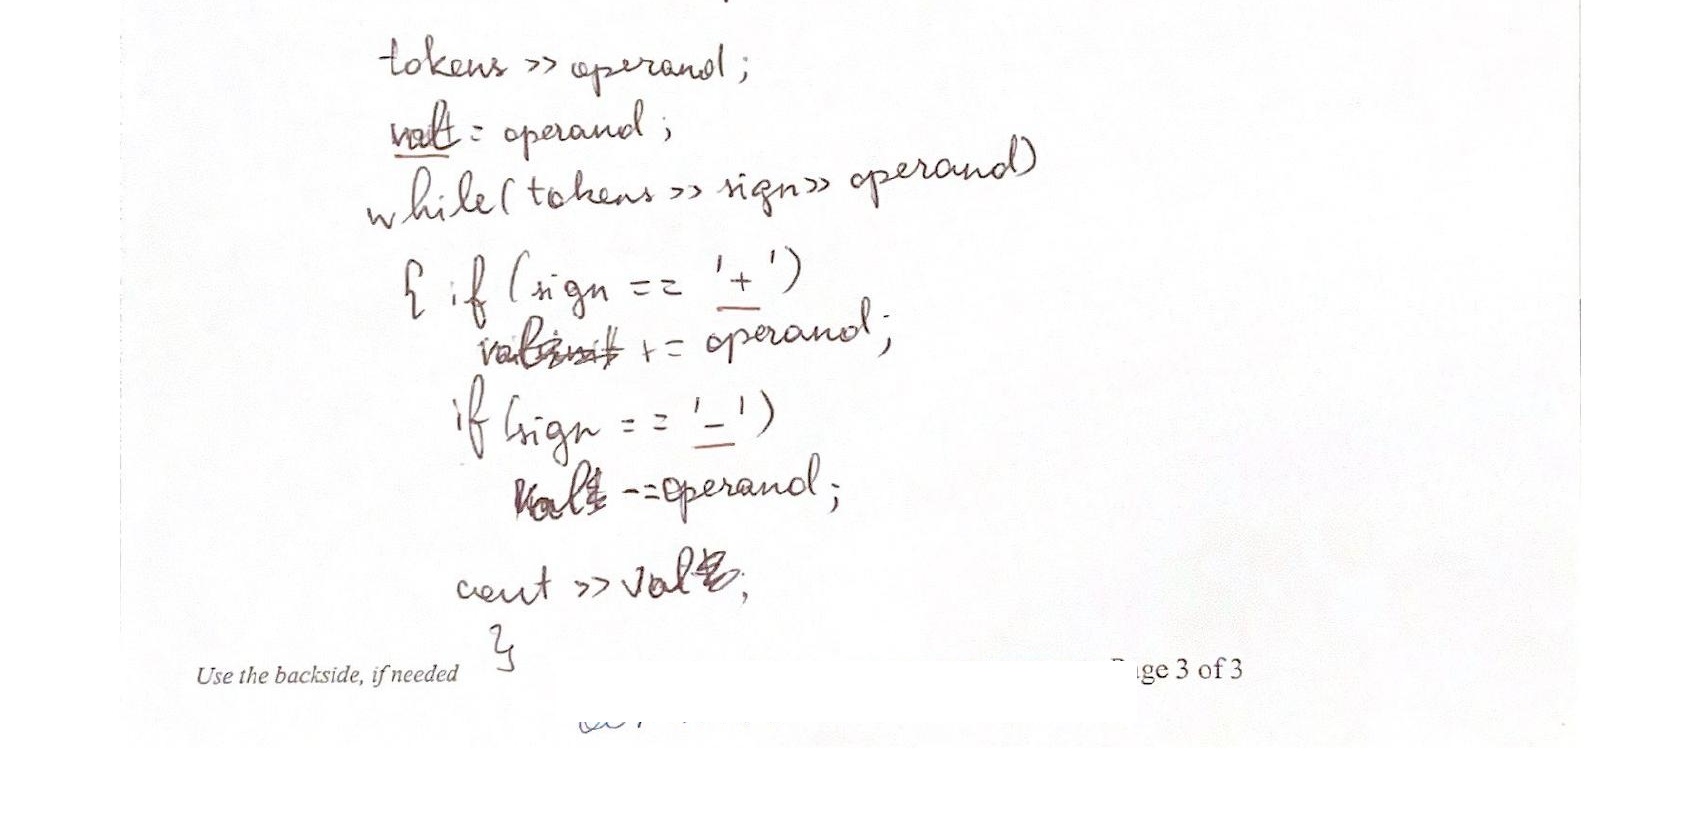 tokens >> operand;
val = operand;
while(tokens >> sign >> operand)
{ if (sign == '+')
val += operand;
if (sign == '-')
val -= operand;
cout >> val;
}
Use the backside, if needed
ge 3 of 3